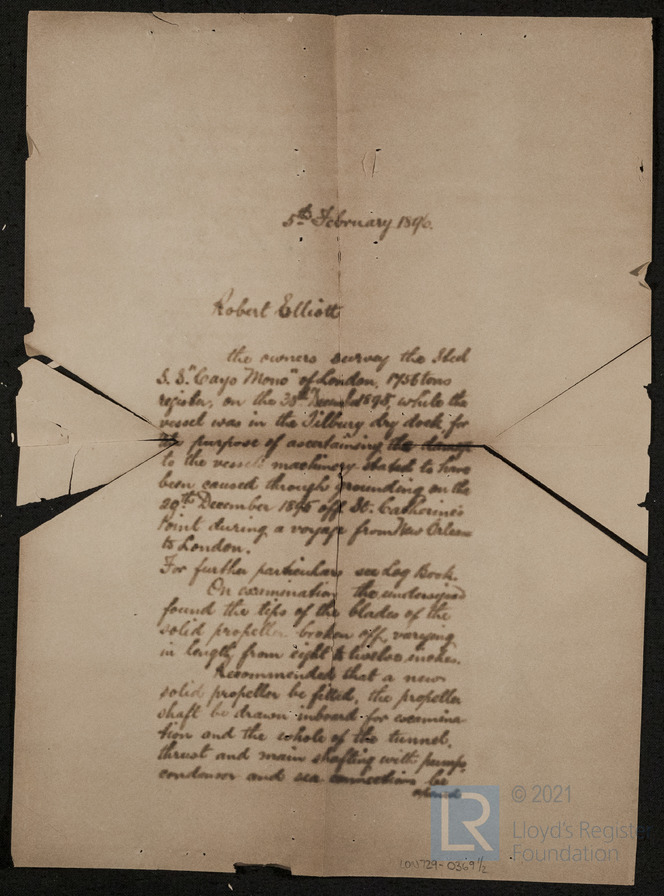 5th February 1896.
Robert Elliott
the owners survey the Steel
S.S. "Cayo Mono" of London, 1756 tons
register, on the 30th December 1895, while the
vessel was in the Tilbury dry dock, for
the purpose of ascertaining the damage
to the vessels machinery stated to have
been caused through grounding on the
29th December 1895 off St. Catherine's
Point during a voyage from New Orleans
to London.
For further particulars see Log Book.
On examination the undersigned
found the tips of the blades of the
solid propeller broken off, varying
in length from eight to twelve inches.
Recommended that a new
solid propeller be fitted, the propeller
shaft be drawn inboard for examina
tion and the whole of the tunnel,
thrust and main shafting with pumps
condenser and sea connections be
opened
LR
© 2021
Lloyd's Register
Foundation
LON729-0369 1/2